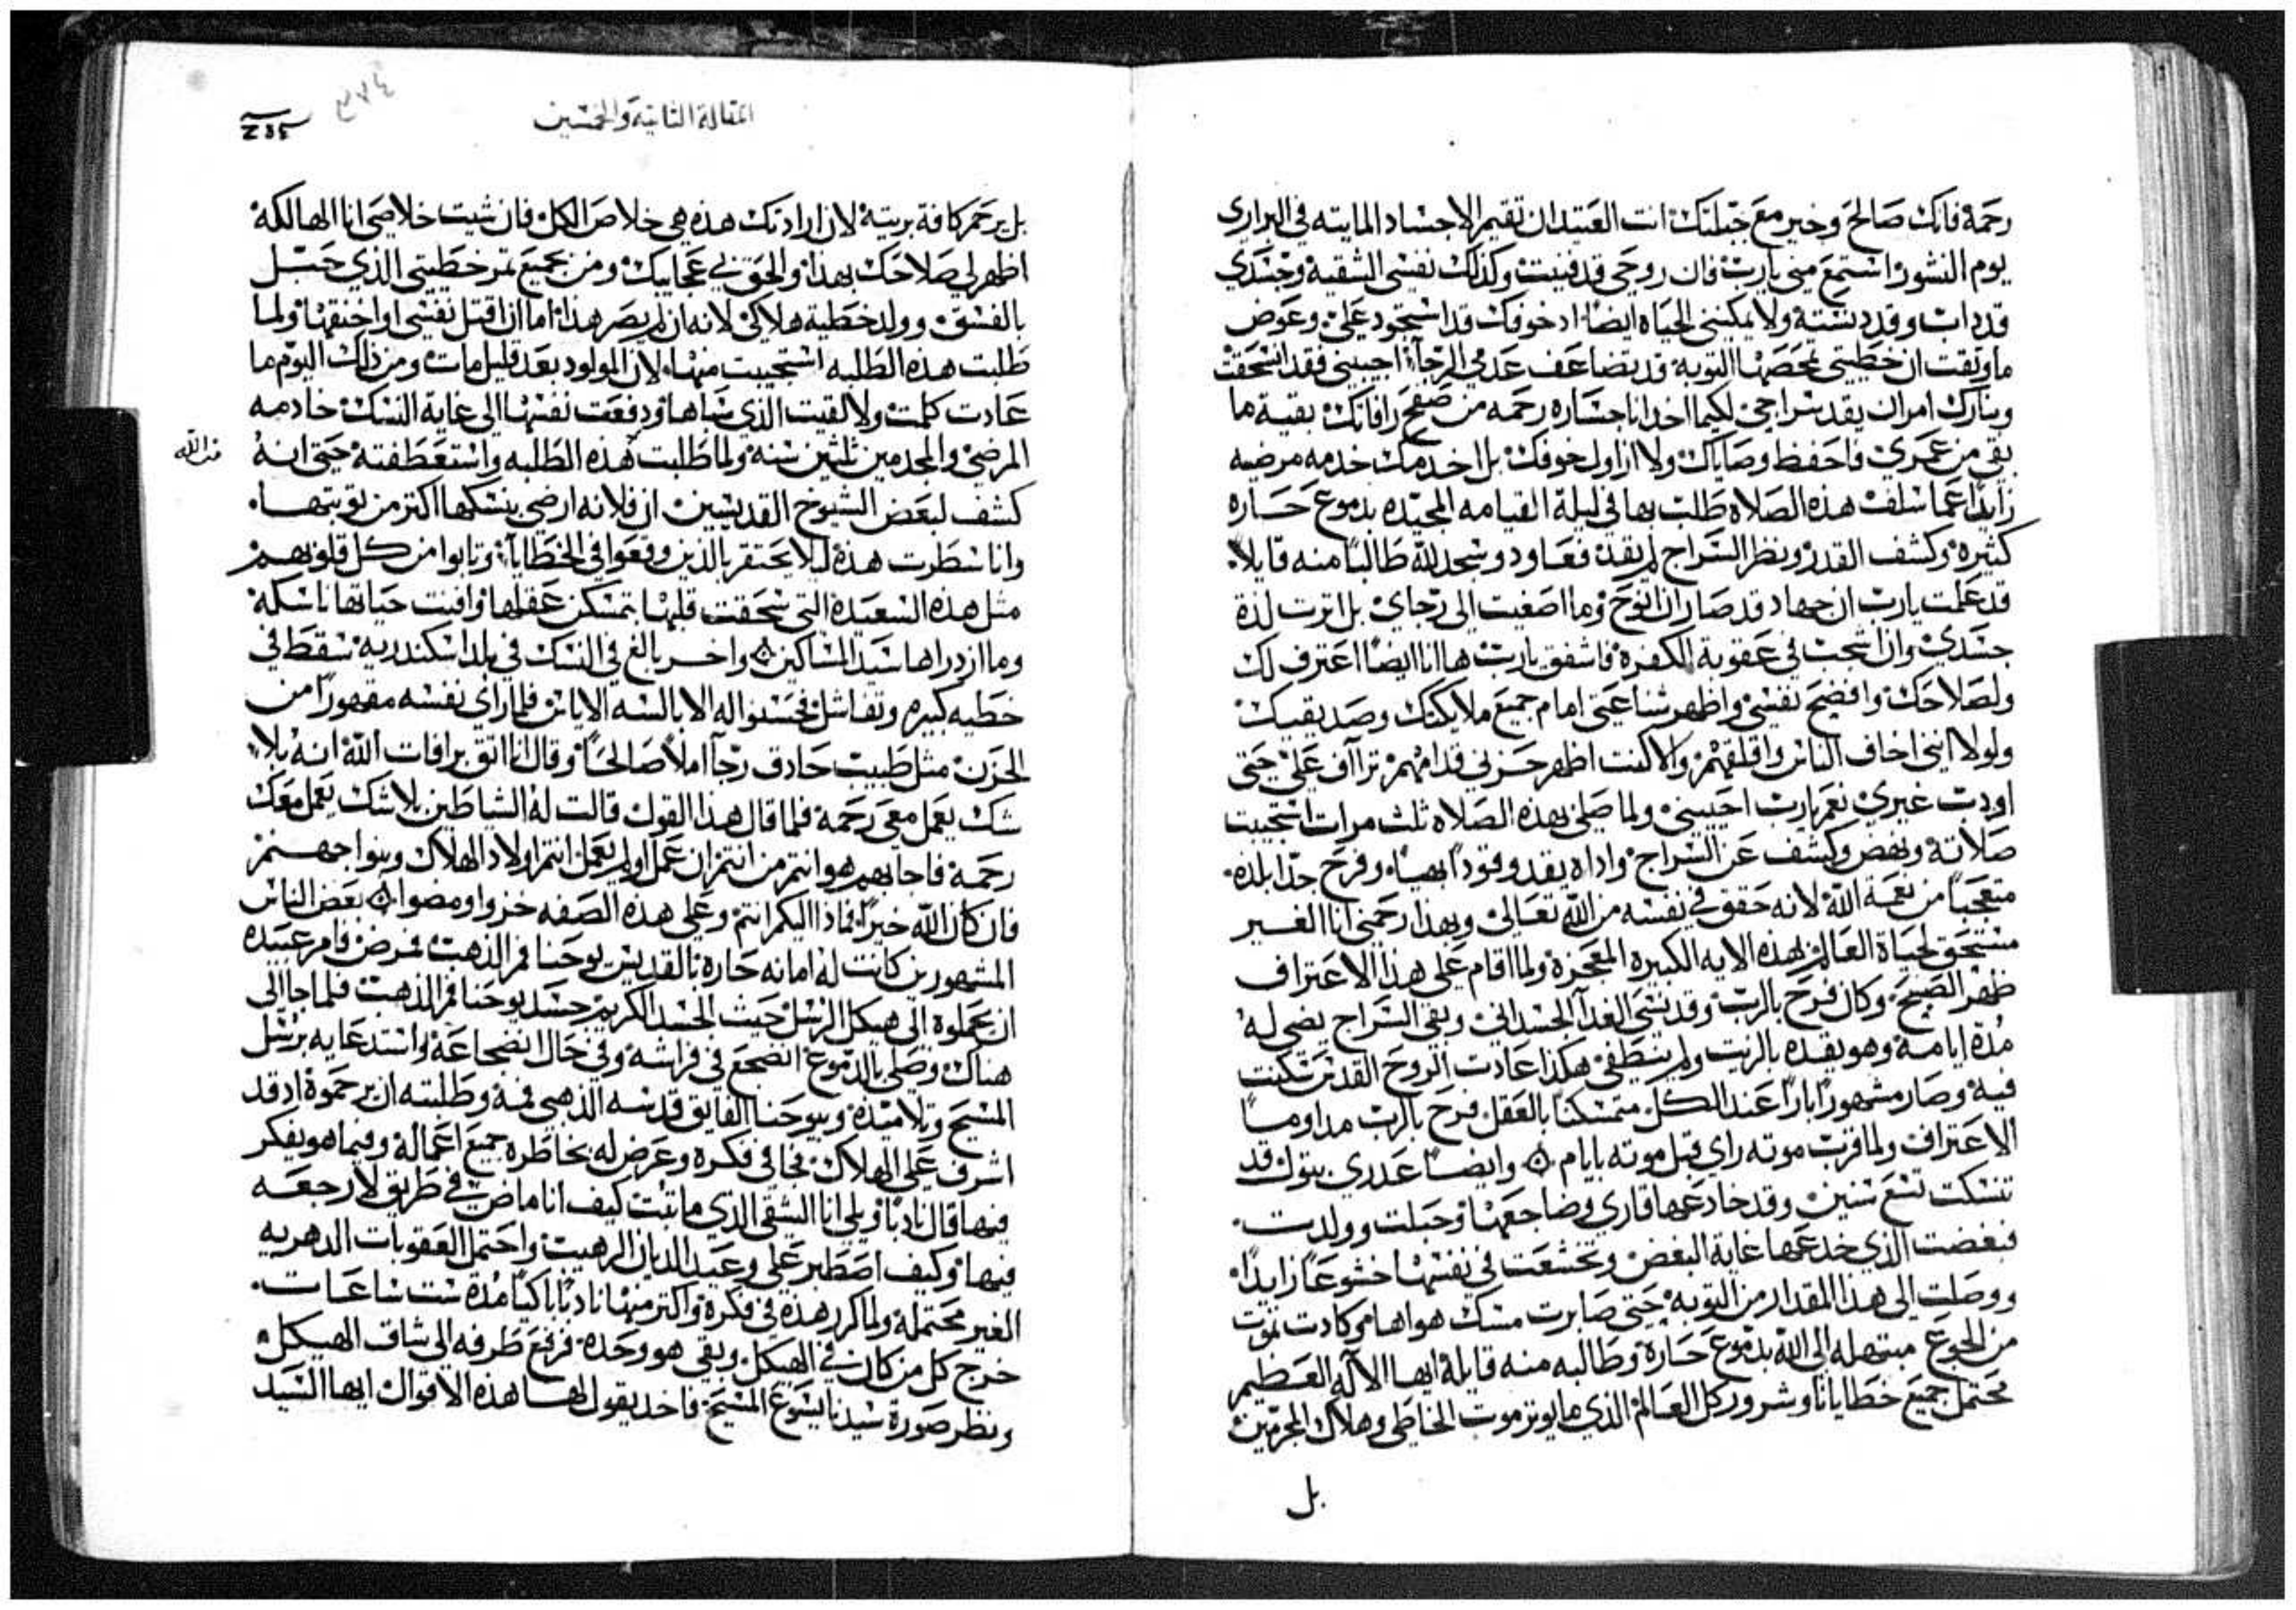 رحمة فانك صالح وخير مع جبلتك انت العتيد ان تقيم الاجساد المايته في البراري
يوم النشور استمع مني يارب فان روحي قد فنيت وكذلك نفسي الشقية وجسدي
قد داب وقد دنسته ولا يمكنني الحياه ايضا اد خوفك قد استحود علي وعوض
ما وثقت ان خطيتي تمحصها التوبة قد تضاعف عدمي الرجآ اجيبني فقد انسحقت
وبنارك امر ان يقد سراجي لكيما اخد انا جساره رحمه من صفح رافاتك بقية ما
بقي من عمري فاحفظ وصاياك ولا ازاول خوفك بل اخدمك خدمه مرضيه
زايدا عما سلف هذه الصلاه طلب بها في ليلة القيامه المجيده بدموع حساره
كثيرة وكشف القدر ونظر السراج لم يقد فعاود وسجد لله طالبا منه قايلا
قد علمت يارب ان جهاد قد صار ان انوح وما اصغيت الى رجاي بل اثرت لذة
جسدي وان اسجن في عقوبة الكفرة فاشفق يارب ها انا ايضا اعترف لك
ولصلاحك وافضح نفسي واظهر شناعتي امام جميع ملايكتك وصديقيك
ولولا انني اخاف الناس واقلقهم والا كنت اظهر حزني قدامهم تراآف علي حتى
اودب غيري نعم يارب احييني ولما صلى بهذه الصلاه ثلث مرات استجيبت
صلاته ونهض وكشف عن السراج واداه يقد وقودا بهيا وفرح جدا بلده
متعجبا من نعمة الله لانه حقق في نفسه من الله تعالي وبهذا رحمني انا الغير
مستحق لحياة العالم بهذه الايه الكبيرة المعجزة ولما اقام على هذا الاعتراف
ظهر الصبح وكان فرح بالرب وقد نسي الغدآ الجسداني وبقي السراج يضي له
مدة ايامه وهو يقده بالزيت ولم ينطفي هكذا عادت الروح القدس سكنت
فيه وصار مشهورا بارا عند الكل متمسكنا بالعقل فرح بالرب مداوما
الاعتراف ولما قرب موته راي قبل موته بايام ۞ وايضا عدري بتوك قد
تنسكت تسع سنين وقد خادعها قاري وضاجعها وحبلت وولدت
فبغضت الذي خدعها غاية البغض وتخشعت في نفسها خشوعا زايدا
ووصلت الى هذا المقدار من التوبه حتى صابرت مسك هواها وكادت تموت
من الجوع مبتهله الى الله بدموع حسارة وطالبه منه قايلة ايها الاله العظيم
محتمل جميع خطايانا وشرور كل العالم الذي ما يوثر موت الخاطي وهلاك المجرمين
بل
المقالة الثانية والخمسين
٣٧٤
بل يرحم كافة بريته لان ارادتك هذه هي خلاص الكل فان شيت خلاصي انا الهالكه
اظهر لي صلاحك بهذا والحق بي عجايبك ومن بجميع ثمر خطيتي الذي حبل
بالفسق وولد خطية هلاكي لانه ان لم يصر هذا اما ان اقتل نفسي او اخنقها ولما
طلبت هذه الطلبه استجيبت منها لان المولود بعد قليل مات ومن ذلك اليوم ما
عادت كلمت ولا لقيت الذي سباها ودفعت نفسها الى غاية النسك خادمه
المرضي والمجدمين ثلثين سنه ولما طلبت هذه الطلبه واستعطفته حتى انه
من الله
كشف لبعض الشيوخ القديسين ان فلانه ارضي بنسكها اكثر من توبتها
وانا سطرت هذه ليلا يحتقر بالذين وقعوا في الخطايآ وتابوا من كل قلوبهم
مثل هذه السعيدة التي سحقت قلبها بتمسكن عقلها وافنت حياتها ناسكة
وما ازدراها سيد المساكين ۞ واخر بالغ في النسك في بلد اسكندريه سقط في
خطيه كبيره وتفاشل فحسنوا له الابالسه الاياس فلما راي نفسه مقهورا من
الحزن مثل طبيب حادق رجآ املا صالحا وقال انا اثق برافات الله انه بلا
شك يعمل معي رحمة فلما قال هذا القول قالت له الشياطين بلا شك يعمل معك
رحمة فاجابهم هو انتم من انتم ان عمل او لم يعمل انتم اولاد الهلاك وبنوا جهنم
فان كان الله خيرا فماذا اليكم انتم وعلى هذه الصفه خزوا ومضوا ۞ بعض الناس
المشهورين كانت له امانه حاره بالقديس يوحنا فم الذهب فمرض فامر عبيده
ان يحملوه الى هيكل الرسل حيث الجسد الكريم جسد يوحنا فم الذهب فلما جا الى
هناك وصلى بالدموع انضجع في فراشه وفي حال انضجاعة واستدعايه برسل
المسيح وتلاميذه وبيوحنا الفايق قدسه الذهبي فمه وطلبته ان يرحموه اد قد
اشرف على الهلاك فجا في فكره وعرض له بخاطره جميع اعماله وفيما هو يفكر
فيها قال نادبا ويلي انا الشقي الذي ما تبت كيف انا ماض في طريق لا رجعه
فيها وكيف اصطبر على وعيد الديان الرهيب واحتمل العقوبات الدهريه
الغير محتمله ولما كرر هذه في فكرة واكثر منها نادبا باكيا مدة ست ساعات
خرج كل من كان في الهيكل وبقي هو وحده فرفع طرفه الى شاق الهيكل
ونظر صورة سيدنا يسوع المسيح فاخد يقول لها هذه الاقوال ايها السيد